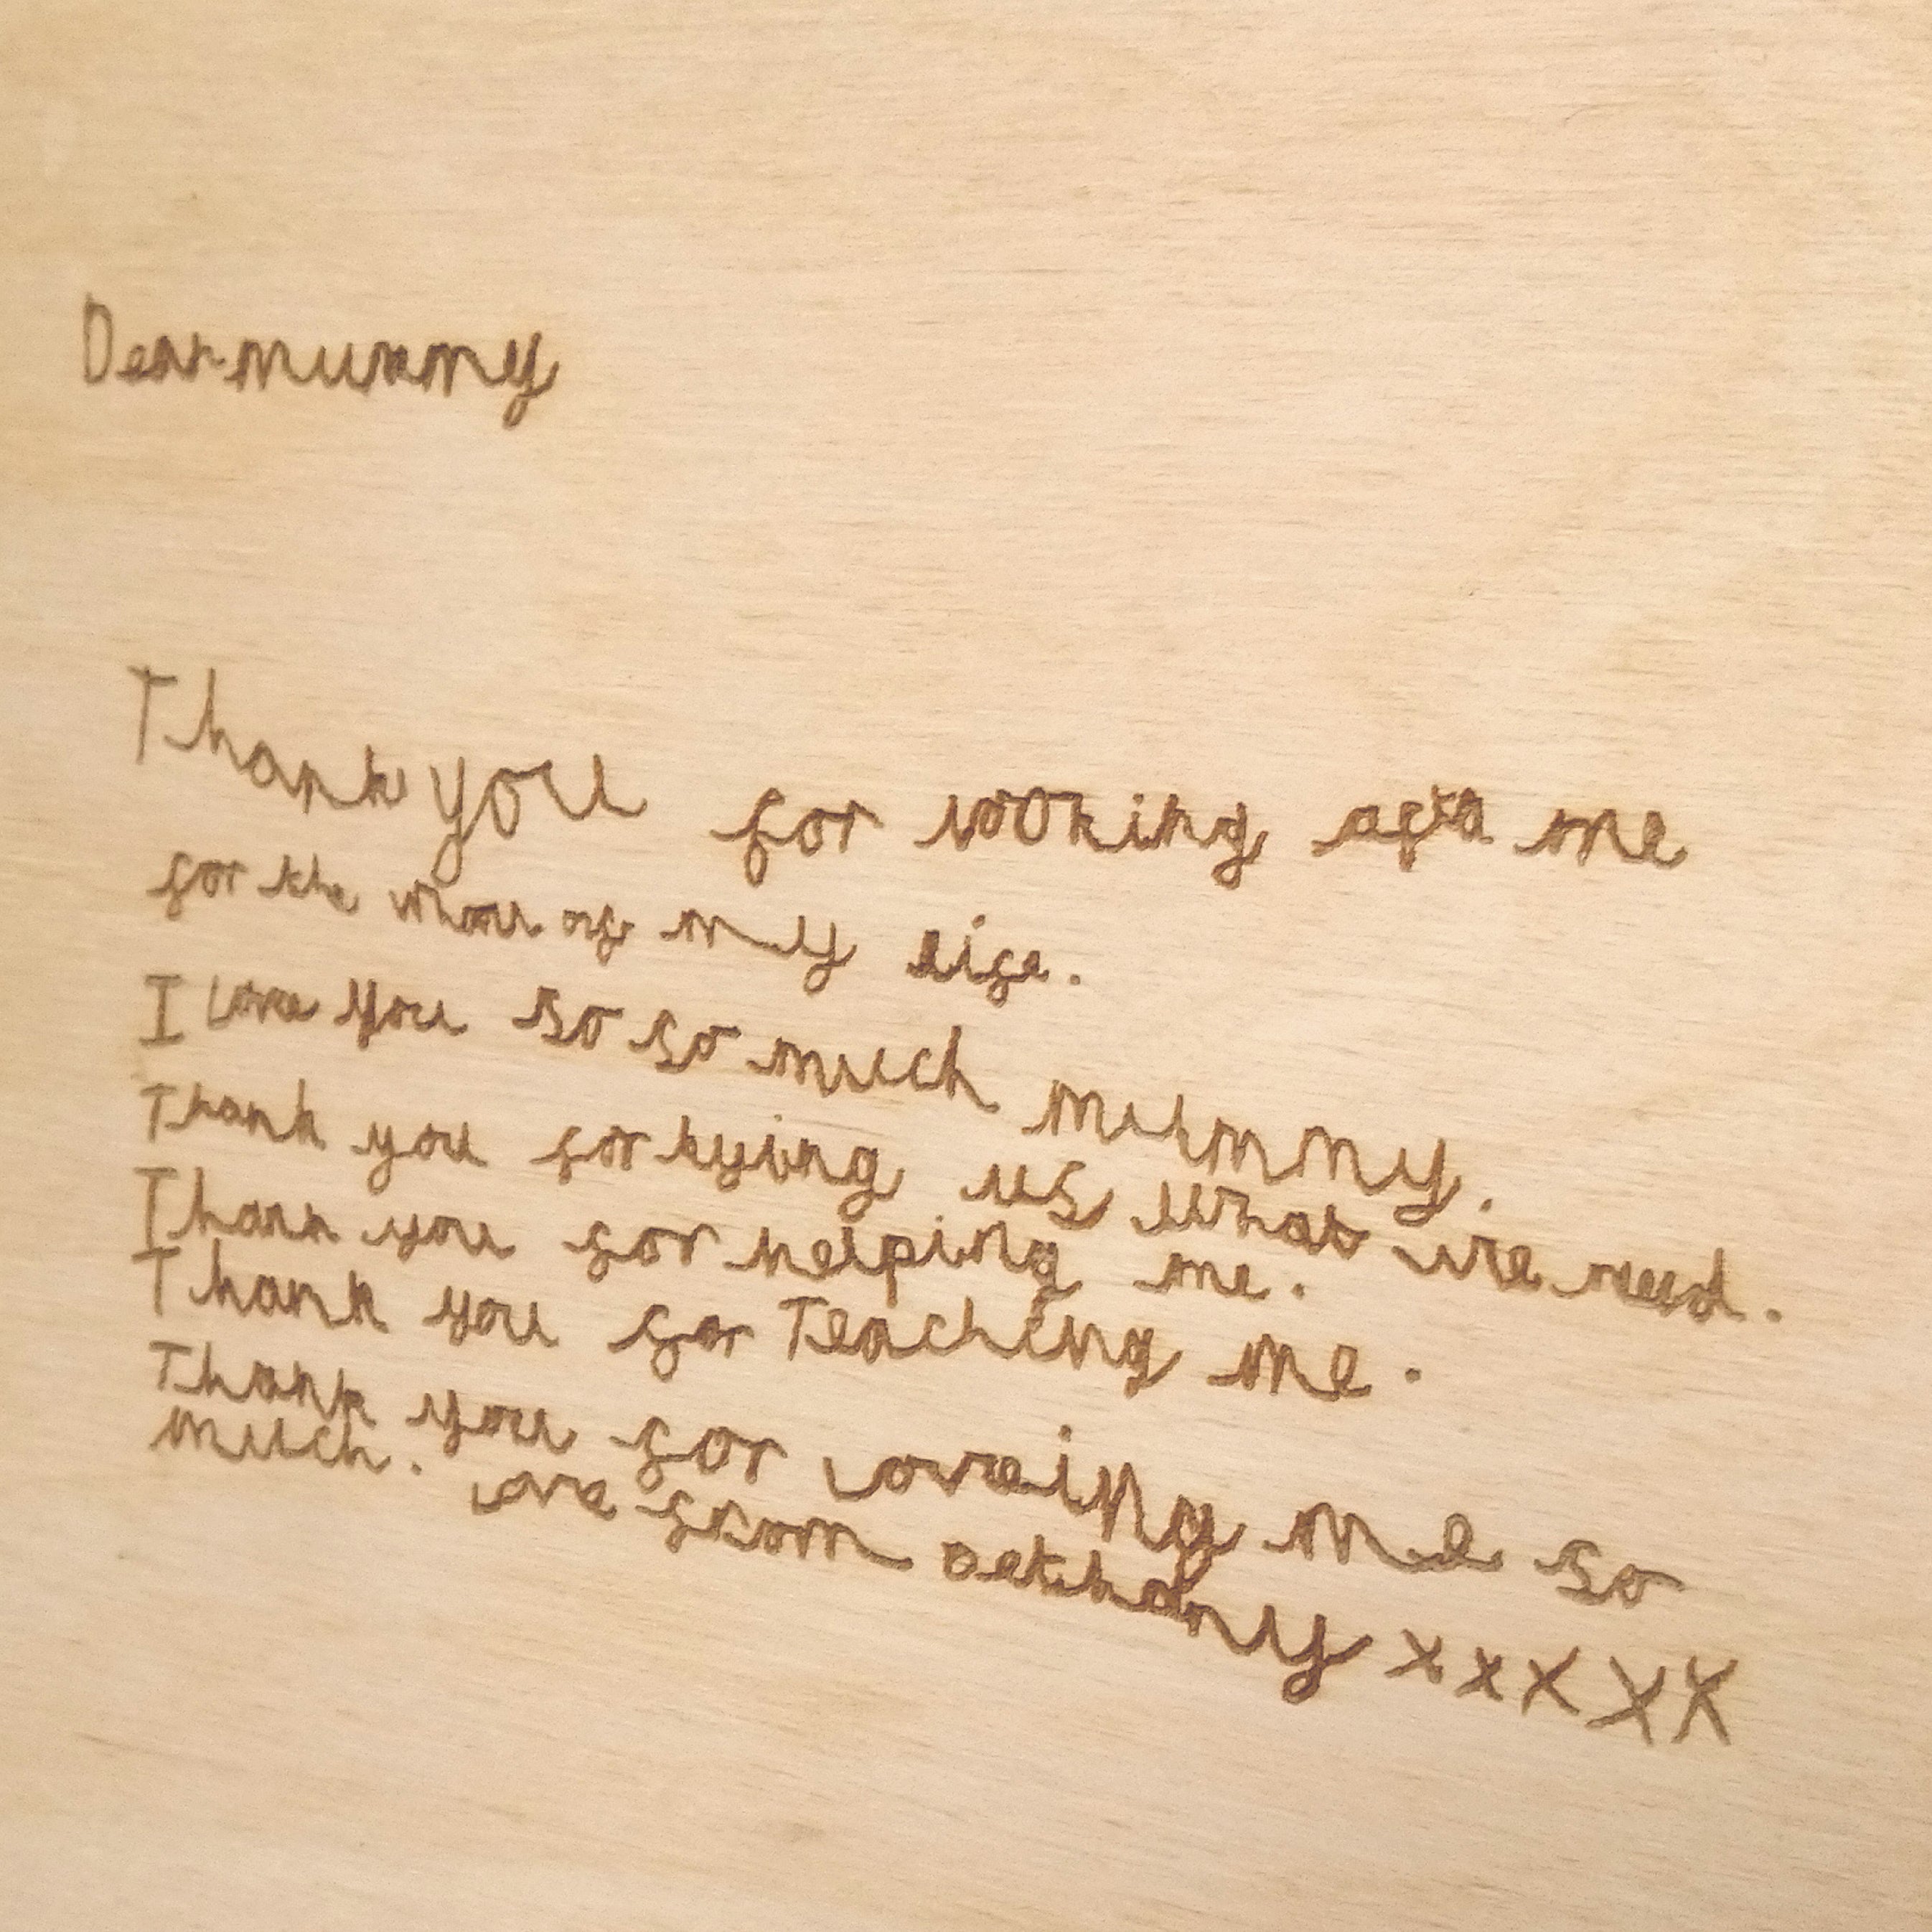 Dear mummy
Thank you for looking afta me
for the whole of my life.
I Love you so so much mummy.
Thank you for bying us what we need.
Thank you for helping me.
Thank you for Teaching me.
Thank you for loveing me so
much. Love from Bethany xxxXX